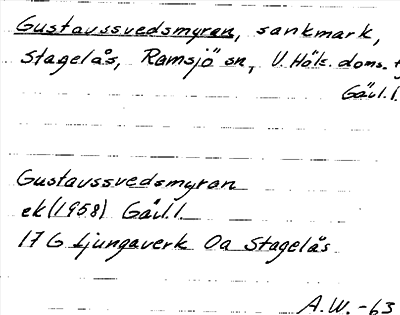 Gustavssvedsmyran, sankmark,
Stagelås, Ramsjö sn, V. Häls. doms.
Gävl.l.
Gustavssvedsmyran
ek (1958) Gävl.l.
17 G Ljungaverk 0a Stagelås
A.W. -63